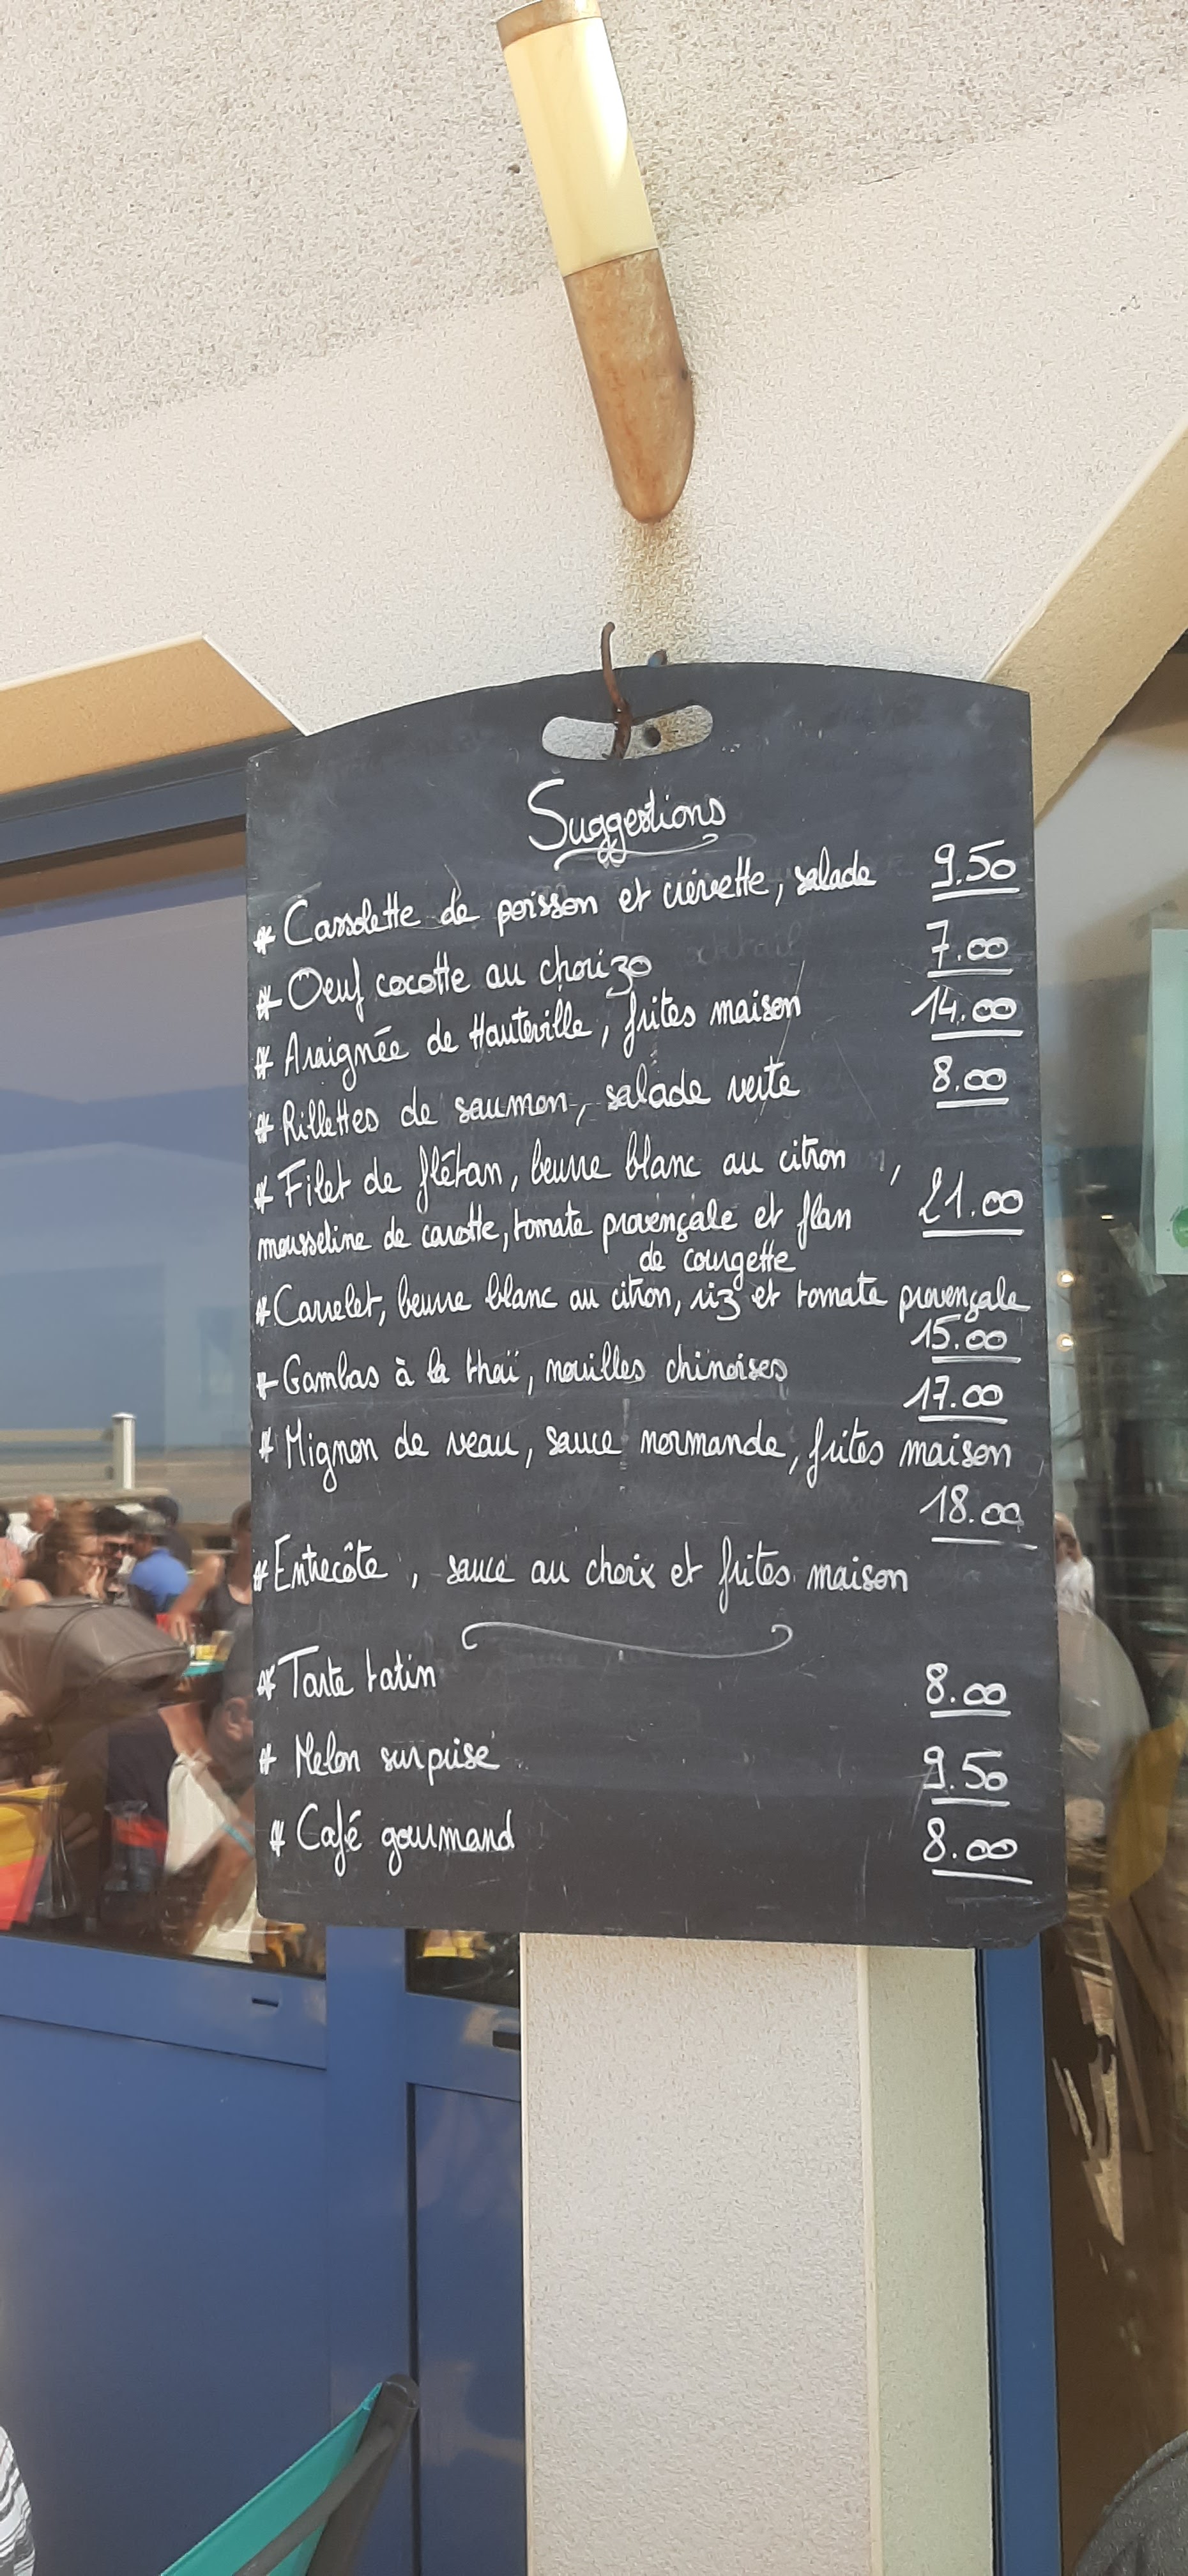 Suggestions
* Cassolette de poisson et crevette, salade 9.50
* Oeuf cocotte au chorizo 7.00
* Araignée de Hauteville, frites maison 14.00
* Rillettes de saumon, salade verte 8.00
* Filet de flétan, beurre blanc au citron,
mousseline de carotte, tomate provençale et flan 21.00
de courgette
* Carrelet, beurre blanc au citron, riz et tomate provençale
15.00
* Gambas à la thaï, nouilles chinoises 17.00
* Mignon de veau, sauce normande, frites maison
18.00
* Entrecôte, sauce au choix et frites maison
* Tarte tatin 8.00
* Melon surprise 9.50
* Café gourmand 8.00